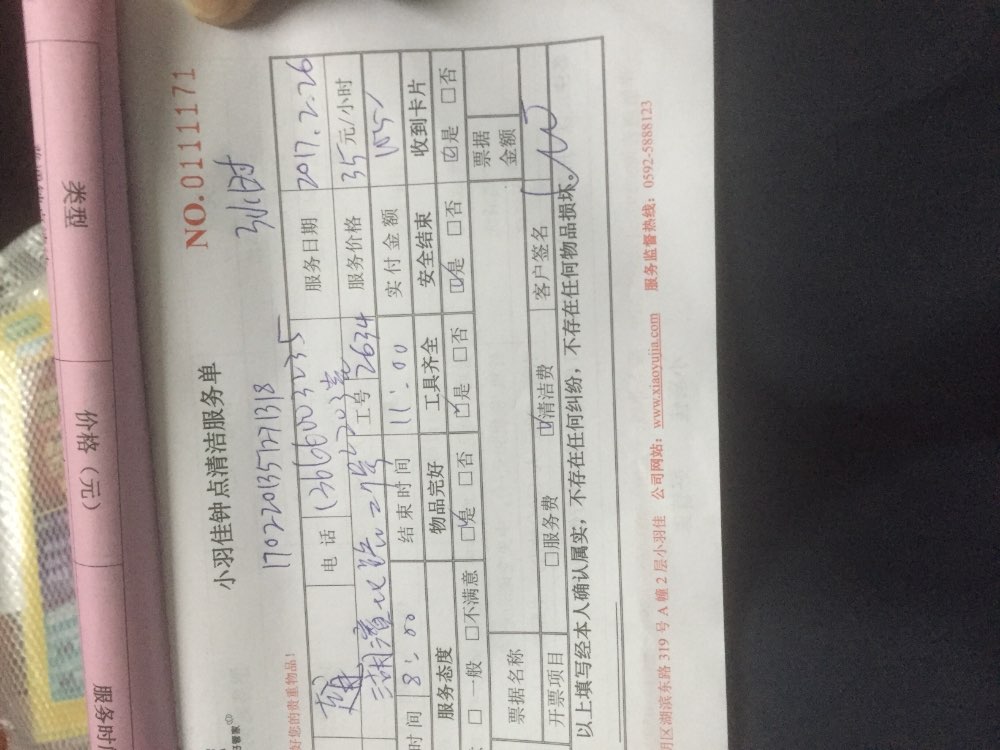 类型
价格（元）
服务时
NO.0111171
小羽佳钟点清洁服务单
3小时
17022013571271318
好您的贵重物品！
电话 13666003235 服务日期 2017.2.26
湖滨北路 工号 2634 服务价格 35元/小时
时间 8:00 结束时间 11:00 实付金额 105
服务态度 物品完好 工具齐全 安全结束 收到卡片
□一般 □不满意 ☑是 □否 ☑是 □否 ☑是 □否 ☑是 □否
票据名称 票据金额
开票项目 □服务费 ☑清洁费 客户签名
以上填写经本人确认属实，不存在任何纠纷，不存在任何物品损坏。
明区湖滨东路 319 号 A 幢 2 层小羽佳 公司网站：www.xiaoyujia.com 服务监督热线：0592-5888123